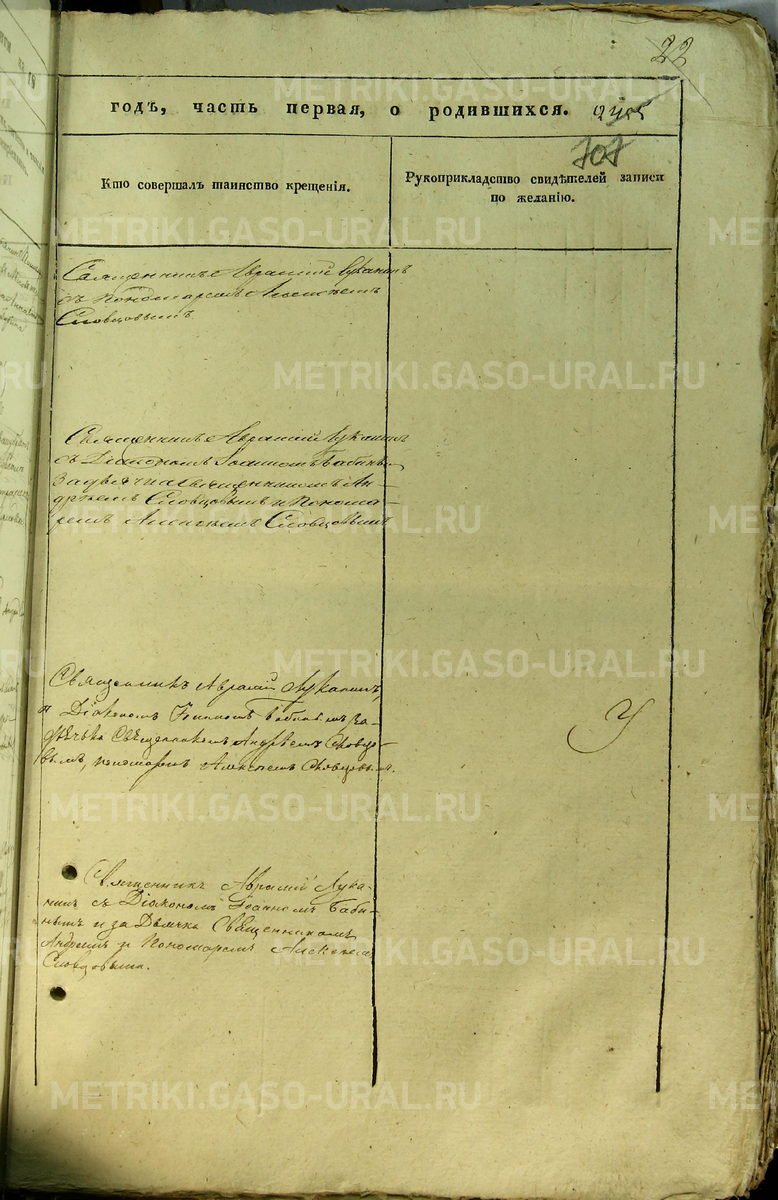 22
годъ, часть первая, о родившихся.
707
Кто совершалъ таинство крещенія.
Рукоприкладство свидѣтелей записи
по желанію.
Священникъ Аврамій Луканинъ
съ пономаремъ Алексѣемъ
Словцовымъ
Священникъ Аврамій Луканинъ
съ Діакономъ Іоанномъ Бабинымъ
за дьячка священникомъ Ан-
дреемъ Словцовымъ и понома-
ремъ Алексѣемъ Словцовымъ
Священникъ Аврамій Луканинъ,
Діакономъ Іоанномъ Бабинымъ за
дьячка Священникомъ Андреемъ Словцо-
вымъ, пономаремъ Алексѣемъ Словцовымъ.
Священникъ Аврамій Лука-
нинъ съ Діакономъ Іоанномъ Баби-
нымъ и за Дьячка Священникомъ
Андреемъ и Пономаремъ Алексѣемъ
Словцовыми.
METRIKI.GASO-URAL.RU